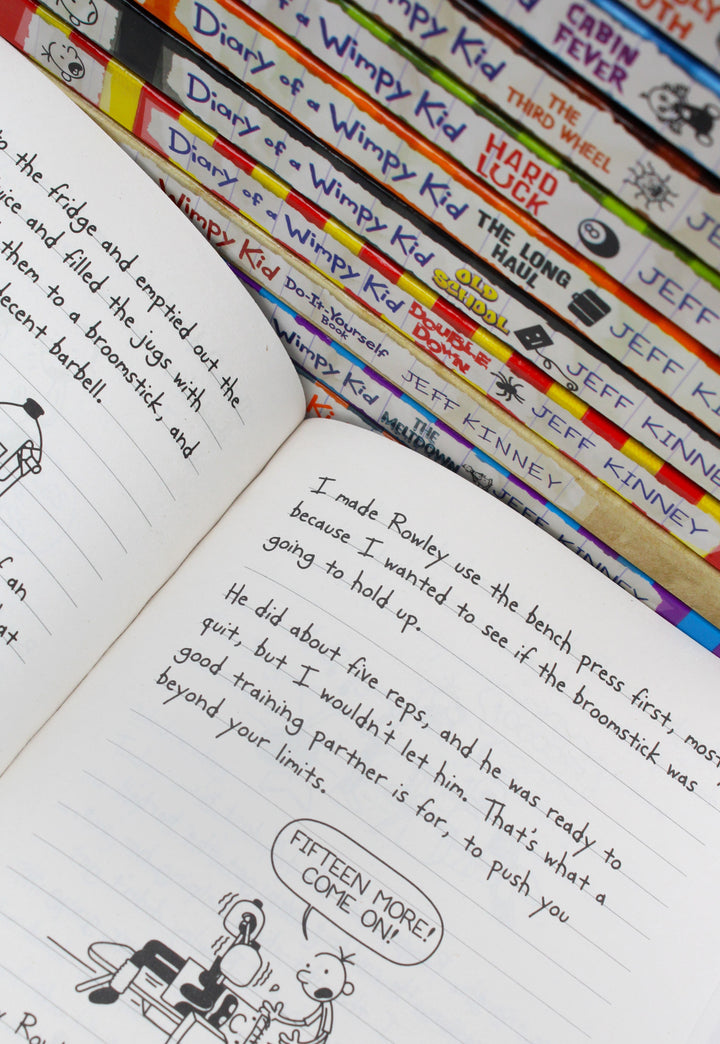 DLY
TRUTH
CABIN
FEVER
Wimpy Kid
THE
THIRD WHEEL
JE
Diary of a Wimpy Kid
HARD
LUCK
JEFF
Diary of a Wimpy Kid
THE LONG
HAUL
JEFF KI
Diary of a Wimpy Kid
OLD
SCHOOL
JEFF KINNE
Diary of a Wimpy Kid
DOUBLE
DOWN
JEFF KINNEY
Wimpy Kid
Do-It-Yourself
Book
JEFF KINNEY
Wimpy Kid
THE
MELTDOWN
JEFF KINNEY
Ki
to the fridge and emptied out the
and filled the jugs with
them to a broomstick, and
decent barbell.
f an
at
I made Rowley use the bench press first, most
because I wanted to see if the broomstick was
going to hold up.
He did about five reps, and he was ready to
quit, but I wouldn't let him. That's what a
good training partner is for, to push you
beyond your limits.
FIFTEEN MORE!
COME ON!